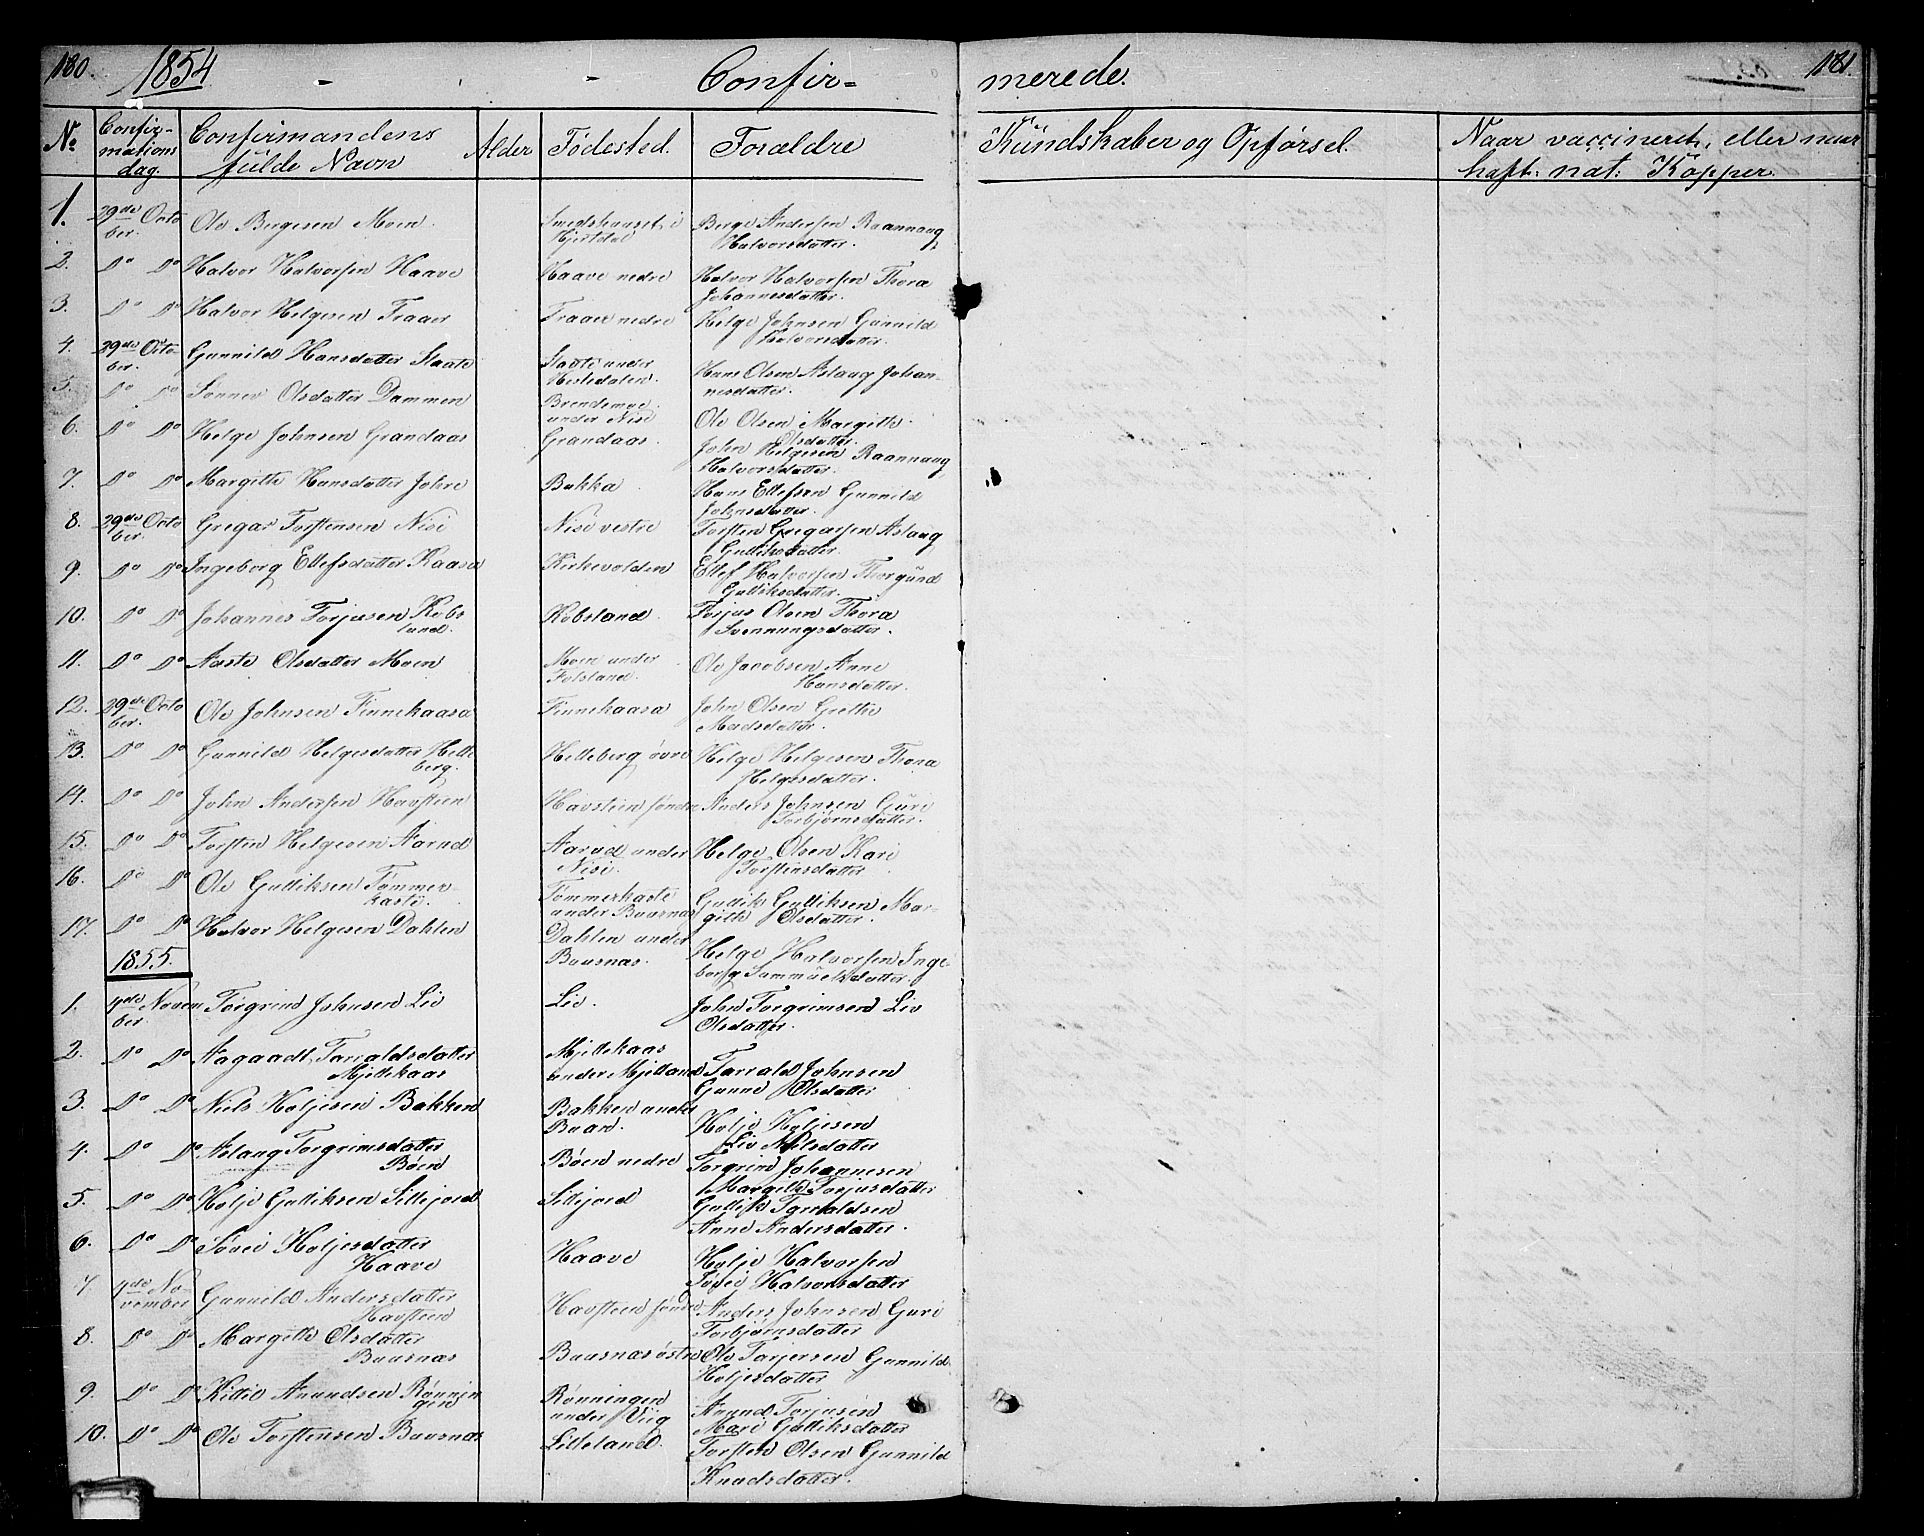 180. 1854 - - Confir= merede. 181.
No Confirmations dag. Confirmandens fulde Navn Alder Fødested. Forældre Kundskaber og Opførsel. Naar vaccineret, eller naar haft: nat: Kopper.
1. 29de October. Ole Bergesen Moen. i Hjertdal Berge Andersen Raannaug Halvorsdatter.
2. Do Do Halvor Halvorsen Haave Haave nedre Halvor Halvorsen Thora Johannesdatter.
3. Do Do Halvor Helgesen Traaer Traaer nedre Helge Johnsen Gunnild Halvorsdatter.
4. 29de October. Gunnild Hansdatter Slaate Slaate under Hestedalen. Hans Olsen Aslaug Johannesdatter.
5. Do Do Sønnev Olsdatter Dammen Brendemoe under Nisi Ole Olsen Margith Olsdatter.
6. Do Do Helge Johnsen Grandaas Grandaas. John Helgesen Raannaug Halvorsdatter.
7. Do Do Margith Hansdatter Johre Bakka Hans Ellefsen Gunnild Johnsdatter.
8. 29de October. Gregar Torstensen Nisi Nisi vestre Torsten Gregarsen Aslaug Gulliksdatter.
9. Do Do Ingeborg Ellefsdatter Kaasa Kirkevolden Ellef Halvorsen Thorgund Gulliksdatter.
10. Do Do Johannes Torjusen Kobsland. Kobsland. Torjus Olsen Thora Svennungsdatter.
11. Do Do Aaste Olsdatter Moen Moen under Folsland. Ole Jacobsen Anne Hansdatter.
12. 29de October. Ole Johnsen Finnekaasa Finnekaasa John Olsen Grethe Madsdatter.
13. Do Do Gunnild Helgesdatter Helleberg. Helleberg øvre Helge Helgesen Thora Helgesdatter.
14. Do Do John Andersen Havsteen Havsteen søndre Anders Johnsen Guri Torbjørnsdatter.
15. Do Do Torsten Helgesen Aarud Aarud under Nisi. Helge Olsen Kari Torstensdatter.
16. Do Do Ole Gulliksen Tømmerkaste. Tømmerkaste under Buusnas Gullik Gulliksen Margith Olsdatter.
17. Do Do Halvor Helgesen Dahlen Dahlen under Buusnas. Helge Halvorsen Ingeborg Sammuelsdatter.
1855.
1. 4de November. Torgrim Johnsen Lie Lie. John Torgrimsen Liv Olsdatter.
2. Do Do Aagaadt Tarraldsdatter Mjellekaas Mjellekaas under Mjelland Tarrald Johnsen Gunne Olsdatter
3. Do Do Niels Holjesen Bakken Bakken under Buan. Holje Holjesen Liv Nilsdatter
4. Do Do Aslaug Torgrimsdatter Bøen Bøen nedre Torgrim Johannesen Margith Torjusdatter
5. Do Do Holje Gulliksen Sillejord Sillejord Gullik Tarraldsen Anne Andersdatter.
6. Do Do Søvei Holjesdatter Haave Haave Holje Halvorsen Søvei Halvorsdatter
7. 4de November Gunnild Andersdatter Havsteen Havsteen søndre Anders Johnsen Guri Torbjørnsdatter
8. Do Do Margith Olsdatter Buusnas Buusnas østre Ole Tarjersen Gunnild Holjesdatter
9. Do Do Kittil Anundsen Rønningen Rønningen under Viig Anund Torjusen Mari Gulliksdatter
10. Do Do Ole Torstensen Buusnas Lilleland. Torsten Olsen Gunnild Knudsdatter.